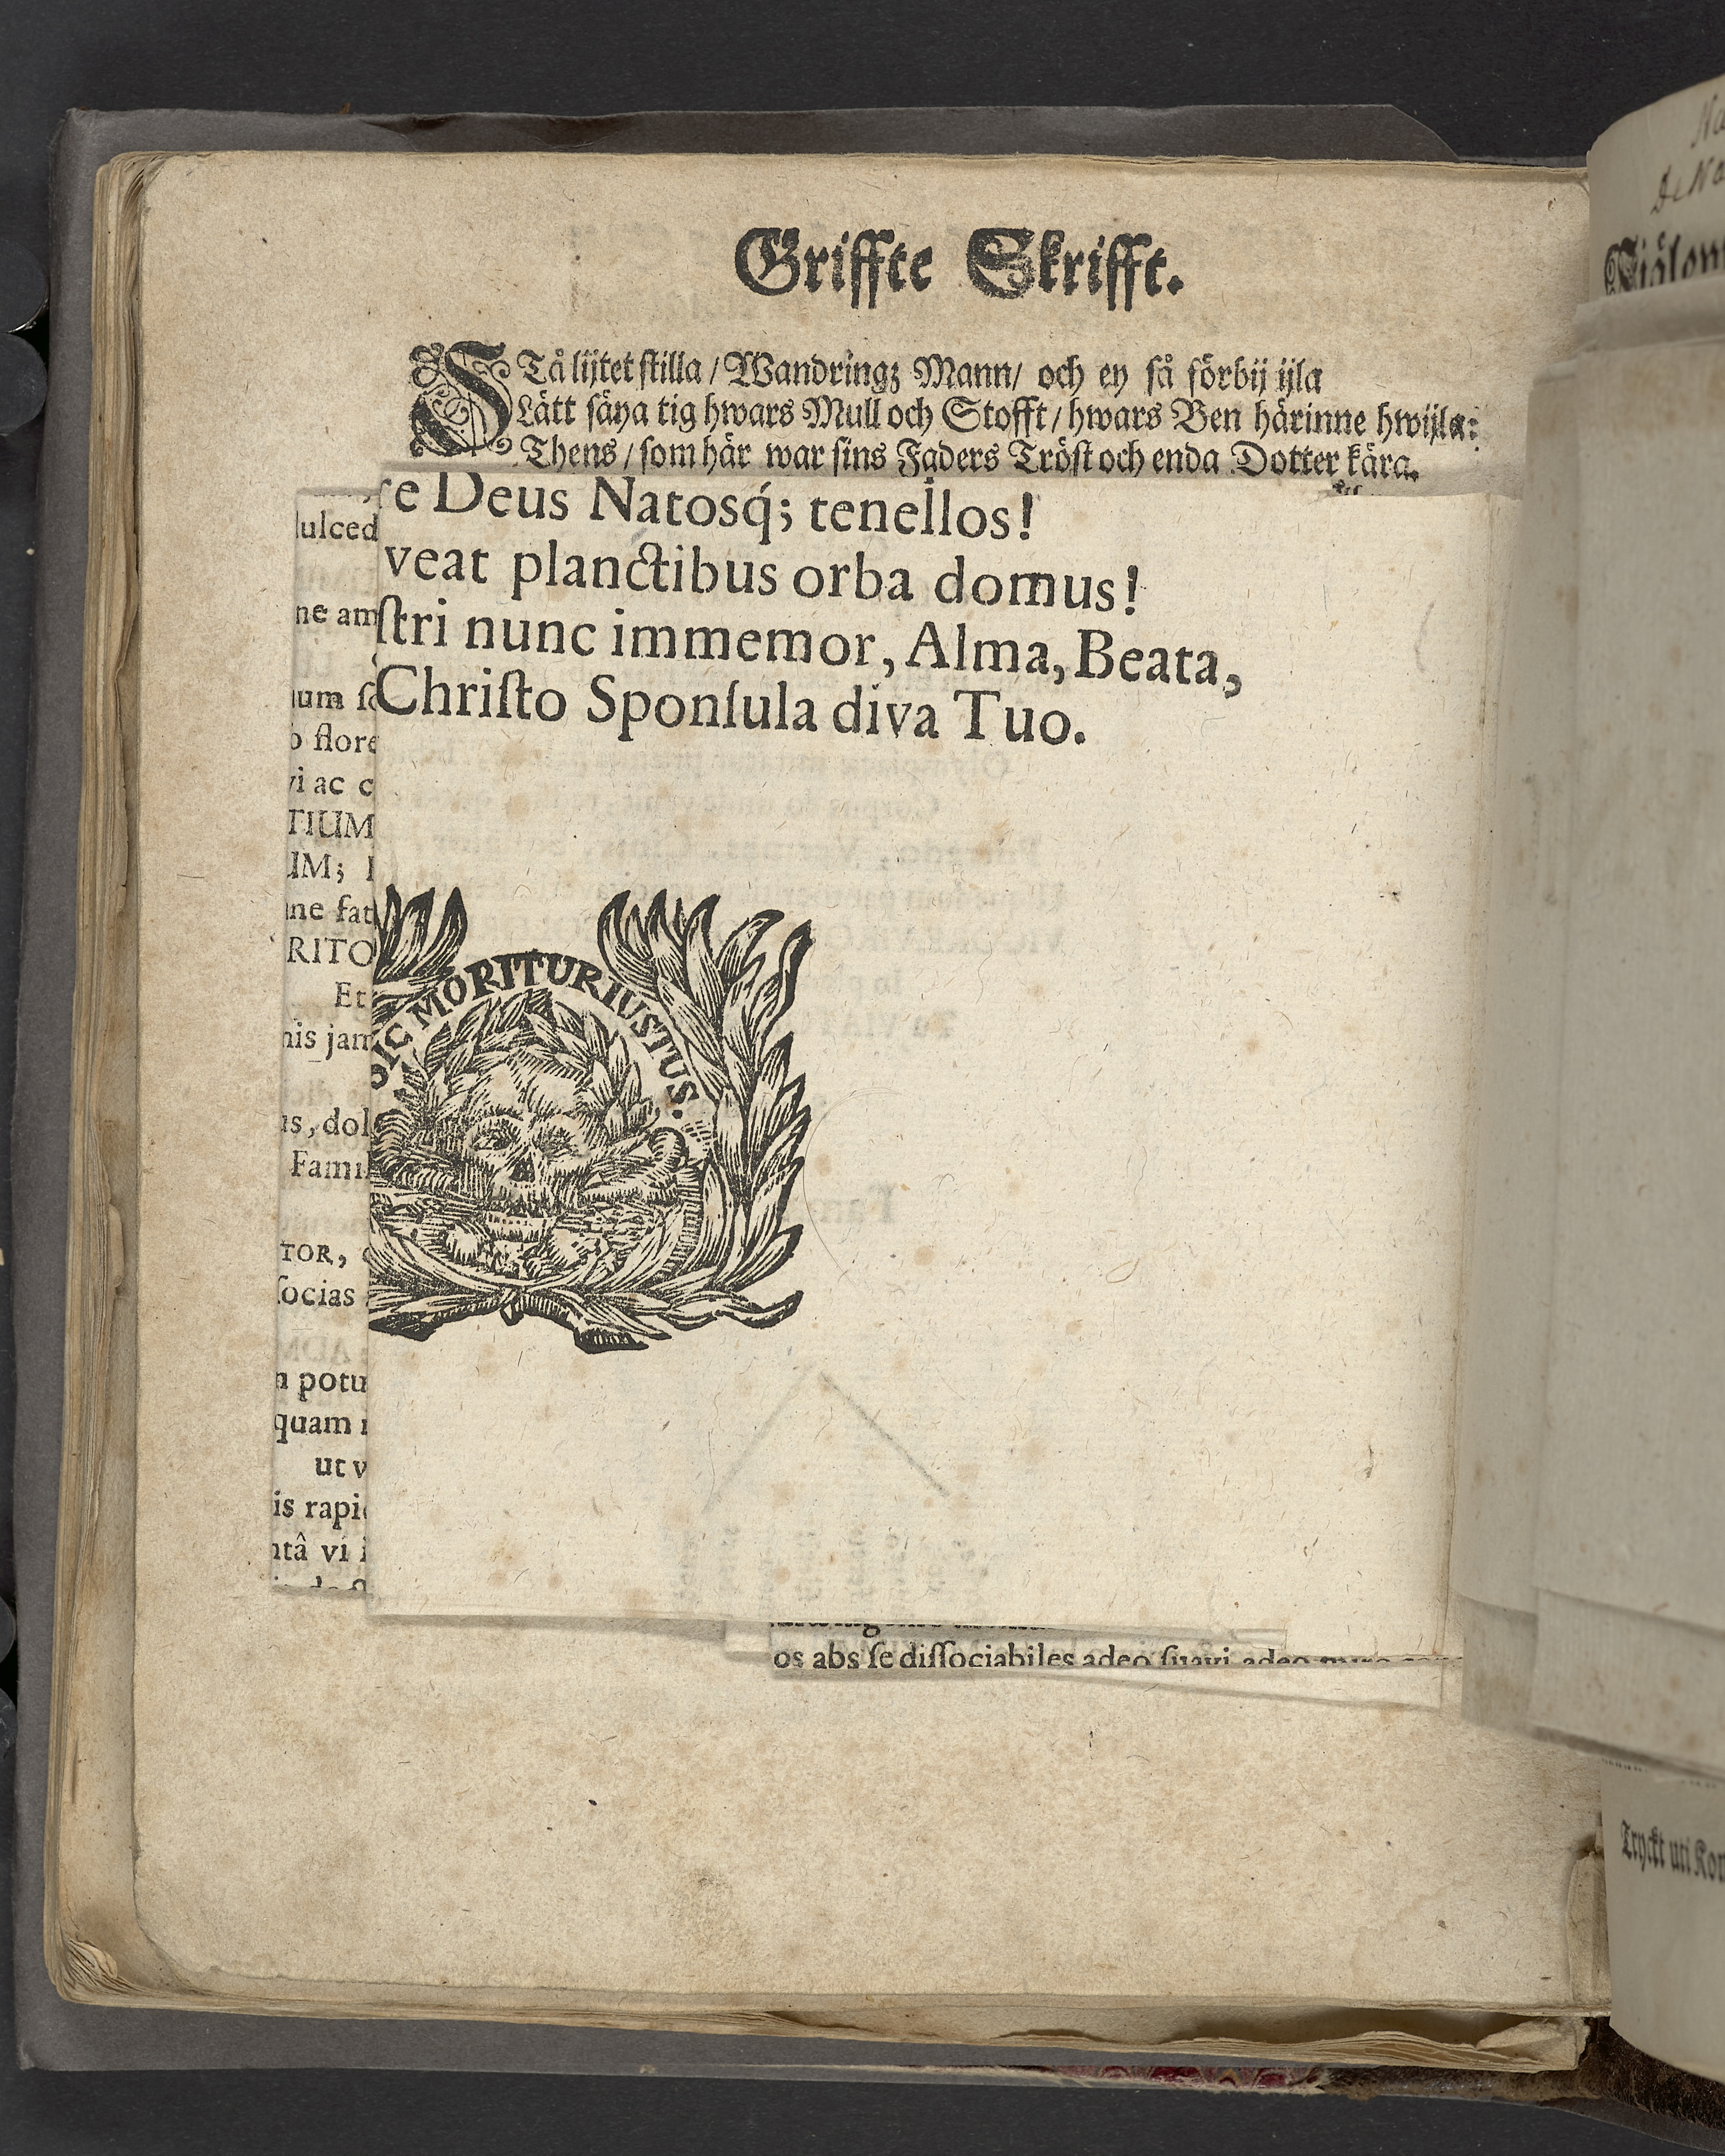 Griffte Skrifft.
STå lijtet stilla / Wandringz Mann / och ey så förbij ijla
Lätt säya tig hwars Mull och Stofft / hwars Ben härinne hwijla:
Thens / som här war sins Faders Tröst och enda Dotter kära.
re Deus Natosq́; tenellos!
veat planctibus orba domus!
ſtri nunc immemor, Alma, Beata,
Chriſto Sponſula diva Tuo.
SIC MORITUR IUSTUS.
ulced
ne am
um ſo
o flore
vi ac c
TIUM
UM; I
ne fat
RITO
Et
nis jam
us, dol
Famil
TOR,
ſocias
n potu
quam
ut v
is rapi
ntâ vi i
os abs ſe diſſociabiles adeo ſuavi adeo
Na
De No
Siälom
Tryckt uti Kon